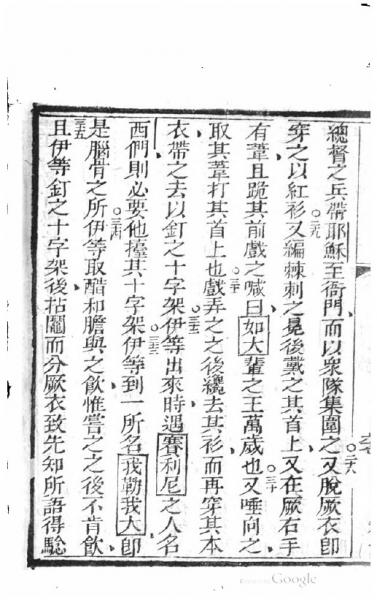 總督之兵帶耶穌至衙門、而以衆隊集圍之、○二八又脫厥衣卽
穿之以紅衫、○二九又編棘刺之冕後戴之其首上、又在厥右手
有葦且跪其前戲之噉曰如大輩之王萬歲也、○三十又唾向之、
取其葦打其首上也、○三一戲弄之之後纔去其衫、而再穿其本
衣、帶之去以釘之十字架、○三二伊等出來時、遇賽利尼之人名
西們則必要他擡其十字架、○三三伊等到一所名我勒我大卽
是腦骨之所、○三四伊等取醋和膽與之飲惟嘗之之後不肯飲、
○三五且伊等釘之十字架後、拈鬮而分厥衣致先知所語得驗
Google